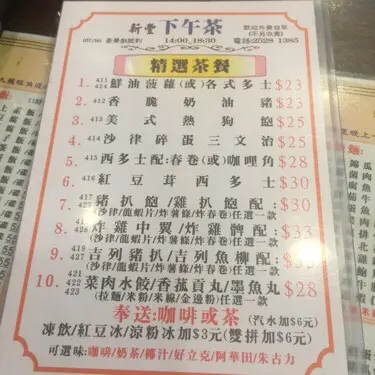 新豐 下午茶 歡迎外賣自取
14:00_18:30 電話:2528 1385
精選茶餐
1. 411 414 鮮油菠蘿(或)各式多士 $23
2. 412 香脆奶油豬 $23
3. 413 美式熱狗飽 $25
4. 414 沙律碎蛋三文治 $25
5. 415 西多士配:春卷(或)咖喱角 $28
6. 416 紅豆茸西多士 $30
7. 417 豬扒飽/雞扒飽配: $30
(沙律/龍蝦片/炸薯條/炸春卷)任選一款
8. 炸雞中翼/炸雞髀配: $33
(沙律/龍蝦片/炸薯條/炸春卷)任選一款
9. 421 吉列豬扒/吉列魚柳配:
(沙律/龍蝦片/炸薯條/炸春卷)任選一款
10. 422 423 菜肉水餃/香菇貢丸/墨魚丸 $28
(拉麵/米粉/米線/金邊粉)任選一款
奉送:咖啡或茶 (汽水加$6元)
凍飲/紅豆冰/涼粉冰加$3元(雙拼加$6元)
可選味:咖啡/奶茶/椰汁/好立克/阿華田/朱古力